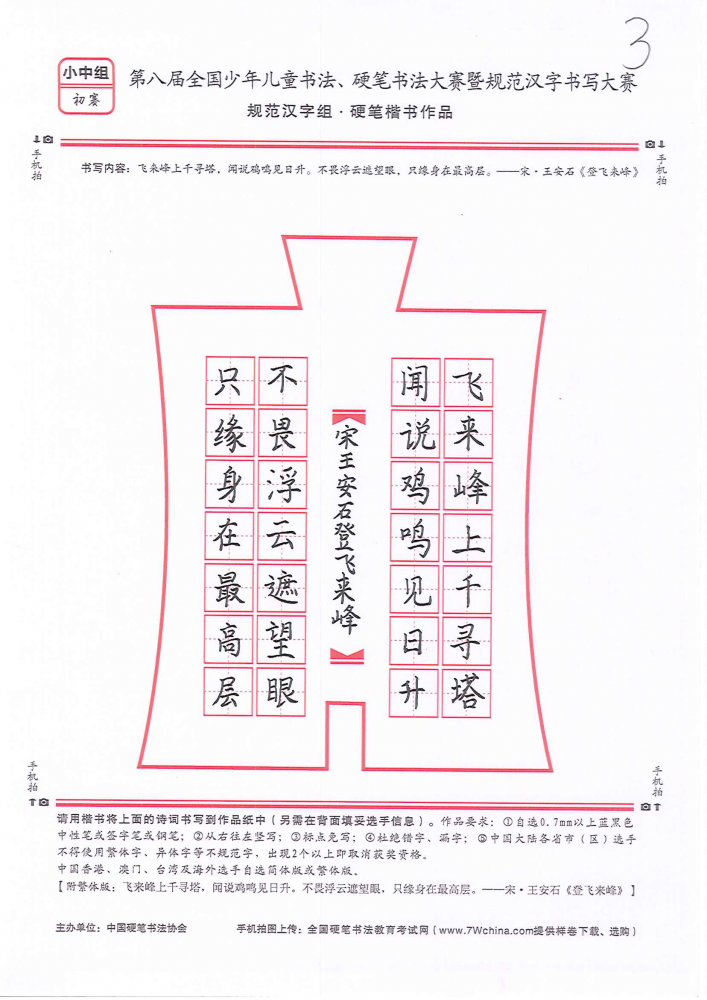 3
小中组
初赛
第八届全国少年儿童书法、硬笔书法大赛暨规范汉字书写大赛
规范汉字组·硬笔楷书作品
手机拍
手机拍
书写内容：飞来峰上千寻塔，闻说鸡鸣见日升。不畏浮云遮望眼，只缘身在最高层。——宋·王安石《登飞来峰》
飞来峰上千寻塔
闻说鸡鸣见日升
宋王安石登飞来峰
不畏浮云遮望眼
只缘身在最高层
手机拍
手机拍
请用楷书将上面的诗词书写到作品纸中（另需在背面填妥选手信息）。作品要求：①自选0.7mm以上蓝黑色
中性笔或签字笔或钢笔；②从右往左竖写；③标点免写；④杜绝错字、漏字；⑤中国大陆各省市（区）选手
不得使用繁体字、异体字等不规范字，出现2个以上即取消获奖资格。
中国香港、澳门、台湾及海外选手自选简体版或繁体版。
【附繁体版：飛來峰上千尋塔，聞說鷄鳴見日升。不畏浮雲遮望眼，只緣身在最高層。——宋·王安石《登飛來峰》】
主办单位：中国硬笔书法协会
手机拍图上传：全国硬笔书法教育考试网（www.7Wchina.com提供样卷下载、选购）